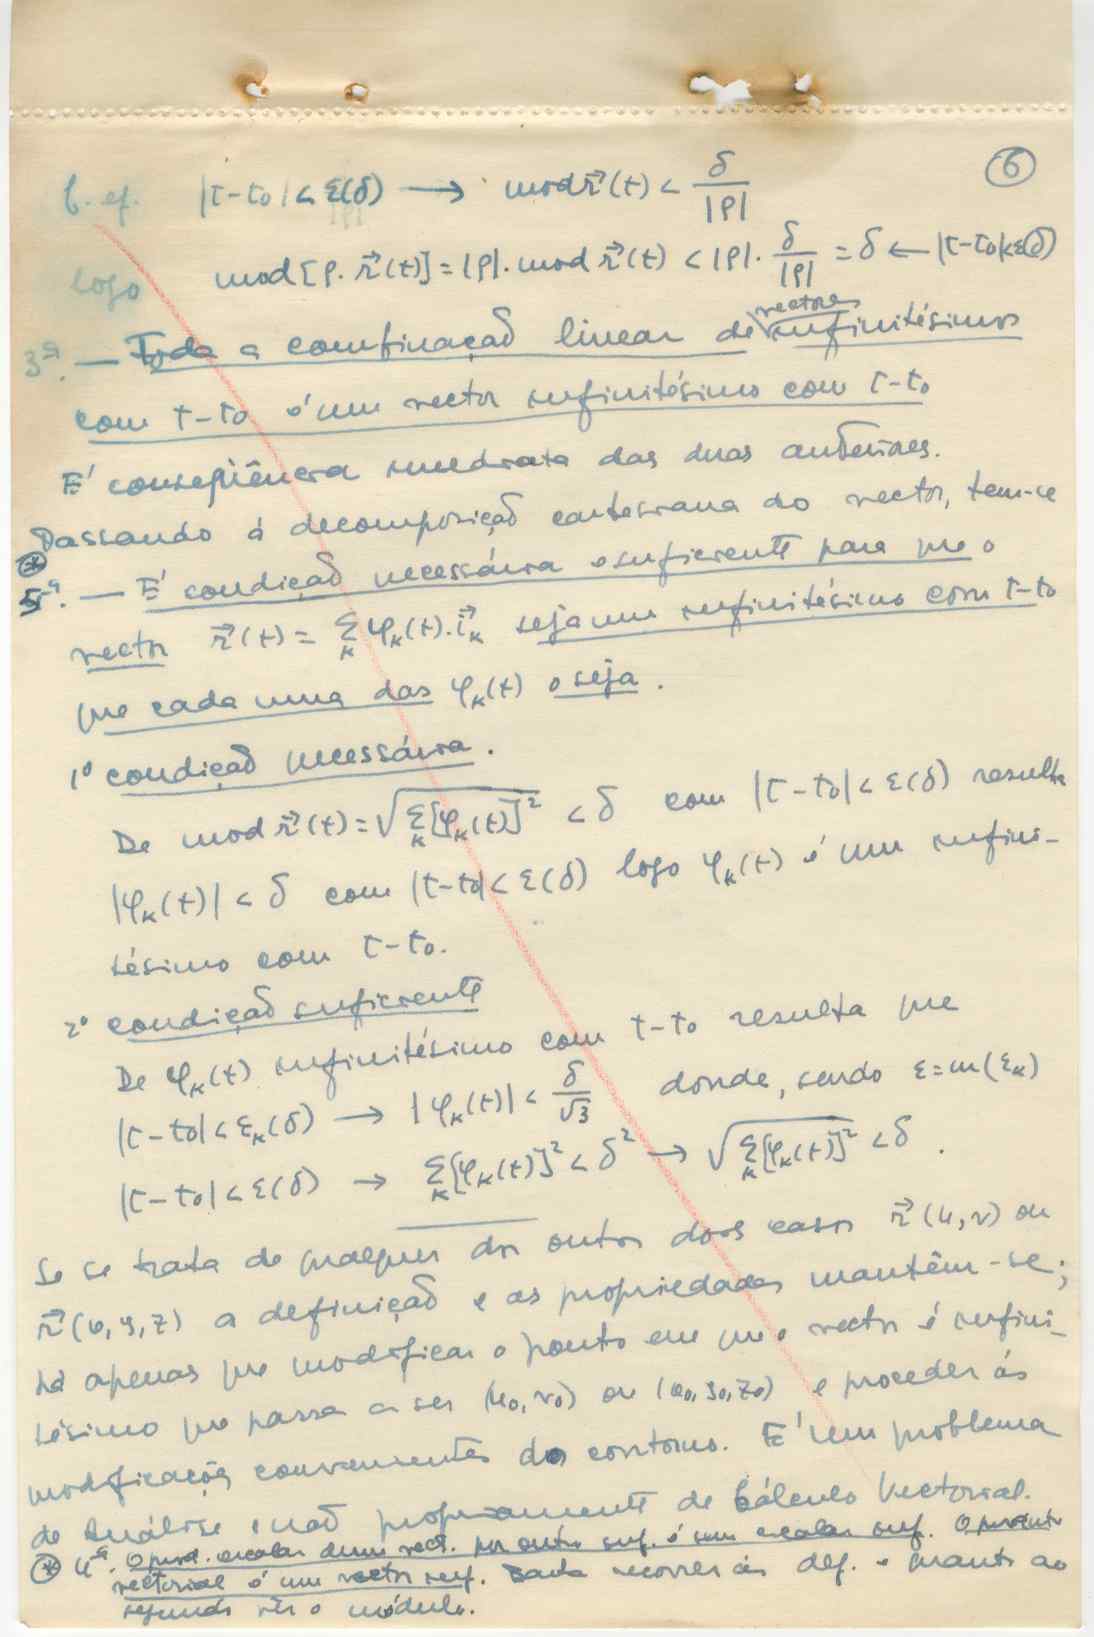 ⑥
b. ef. |t-t₀| < ε(δ) → mod r⃗(t) < δ/|ρ|
logo mod[ρ. r⃗(t)] = |ρ|. mod r⃗(t) < |ρ|. δ/|ρ| = δ ← |t-t₀| < ε(δ)
3ª. — Toda a combinação linear de vectores infinitésimos
com t-t₀ é um vector infinitésimo com t-t₀
E' conseqüência imediata das duas anteriores.
Passando á decomposição cartesiana do vector, tem-se
⊛
5ª. — E' condição necessária e suficiente para que o
vector r⃗(t) = Σₖ φₖ(t). i⃗ₖ seja um infinitésimo com t-t₀
que cada uma das φₖ(t) o seja.
1º condição necessária.
De mod r⃗(t) = √(Σₖ[φₖ(t)]²) < δ com |t-t₀| < ε(δ) resulta
|φₖ(t)| < δ com |t-t₀| < ε(δ) logo φₖ(t) é um infini-
tésimo com t-t₀.
2º condição suficiente
De φₖ(t) infinitésimo com t-t₀ resulta que
|t-t₀| < εₖ(δ) → |φₖ(t)| < δ/√3 donde, sendo ε = m(εₖ)
|t-t₀| < ε(δ) → Σₖ[φₖ(t)]² < δ² → √(Σₖ[φₖ(t)]²) < δ.
Se se trata de qualquer dos outros dois casos r⃗(u,v) ou
r⃗(x,y,z) a definição e as propriedades mantêm-se;
há apenas que modificar o ponto em que o vector é infini-
tésimo que passa a ser (u₀,v₀) ou (x₀,y₀,z₀) e proceder ás
modificações convenientes do contorno. E' um problema
de Análise e não propriamente de Cálculo Vectorial.
⊛ 4ª. O prod. escalar dum vect. por outro inf. é um escalar inf. O produto
vectorial é um vector inf. Basta recorrer ás def. e quanto ao
segundo vêr o módulo.